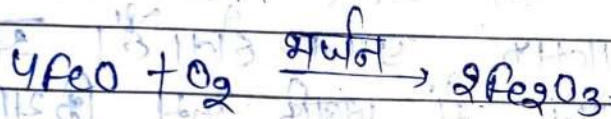 4FeO + O2 भर्जन → 2Fe2O3